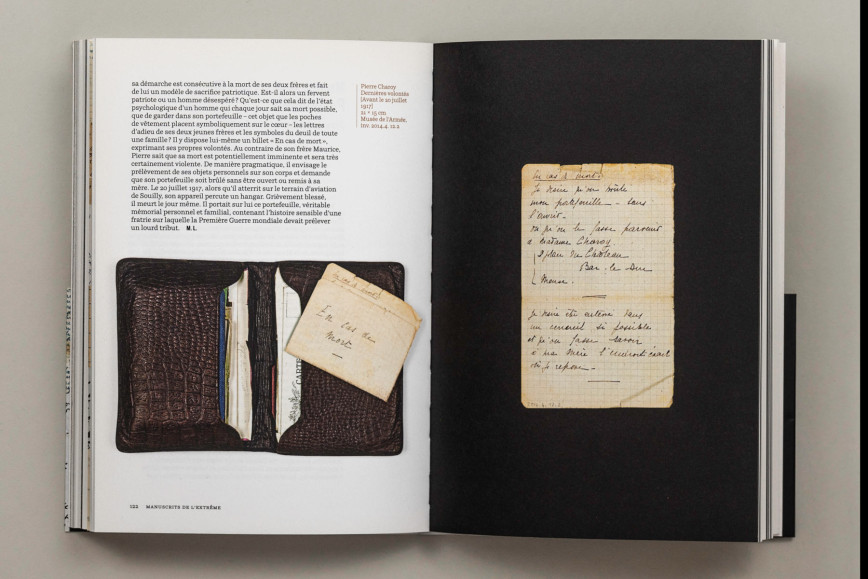 sa démarche est consécutive à la mort de ses deux frères et fait
de lui un modèle de sacrifice patriotique. Est-il alors un fervent
patriote ou un homme désespéré ? Qu'est-ce que cela dit de l'état
psychologique d'un homme qui chaque jour sait sa mort possible,
que de garder dans son portefeuille – cet objet que les poches
de vêtement placent symboliquement sur le cœur – les lettres
d'adieu de ses deux jeunes frères et les symboles du deuil de toute
une famille ? Il y dispose lui-même un billet « En cas de mort »,
exprimant ses propres volontés. Au contraire de son frère Maurice,
Pierre sait que sa mort est potentiellement imminente et sera très
certainement violente. De manière pragmatique, il envisage le
prélèvement de ses objets personnels sur son corps et demande
que son portefeuille soit brûlé sans être ouvert ou remis à sa
mère. Le 20 juillet 1917, alors qu'il atterrit sur le terrain d'aviation
de Souilly, son appareil percute un hangar. Grièvement blessé,
il meurt le jour même. Il portait sur lui ce portefeuille, véritable
mémorial personnel et familial, contenant l'histoire sensible d'une
fratrie sur laquelle la Première Guerre mondiale devait prélever
un lourd tribut. M. L.
Pierre Charoy
Dernières volontés
[Avant le 20 juillet
1917]
21 × 15 cm
Musée de l'Armée,
inv. 2014.4. 12.2
En cas de
mort
CARTE
122 MANUSCRITS DE L'EXTRÊME
En cas de mort :
Je désire qu'on brûle
mon portefeuille – sans
l'ouvrir –
ou qu'on le fasse parvenir
à Madame Charoy
place du Château
Bar-le-Duc
Meuse.
Je désire être enterré dans
un cercueil si possible
et qu'on fasse savoir
à ma mère l'endroit exact
où je repose –